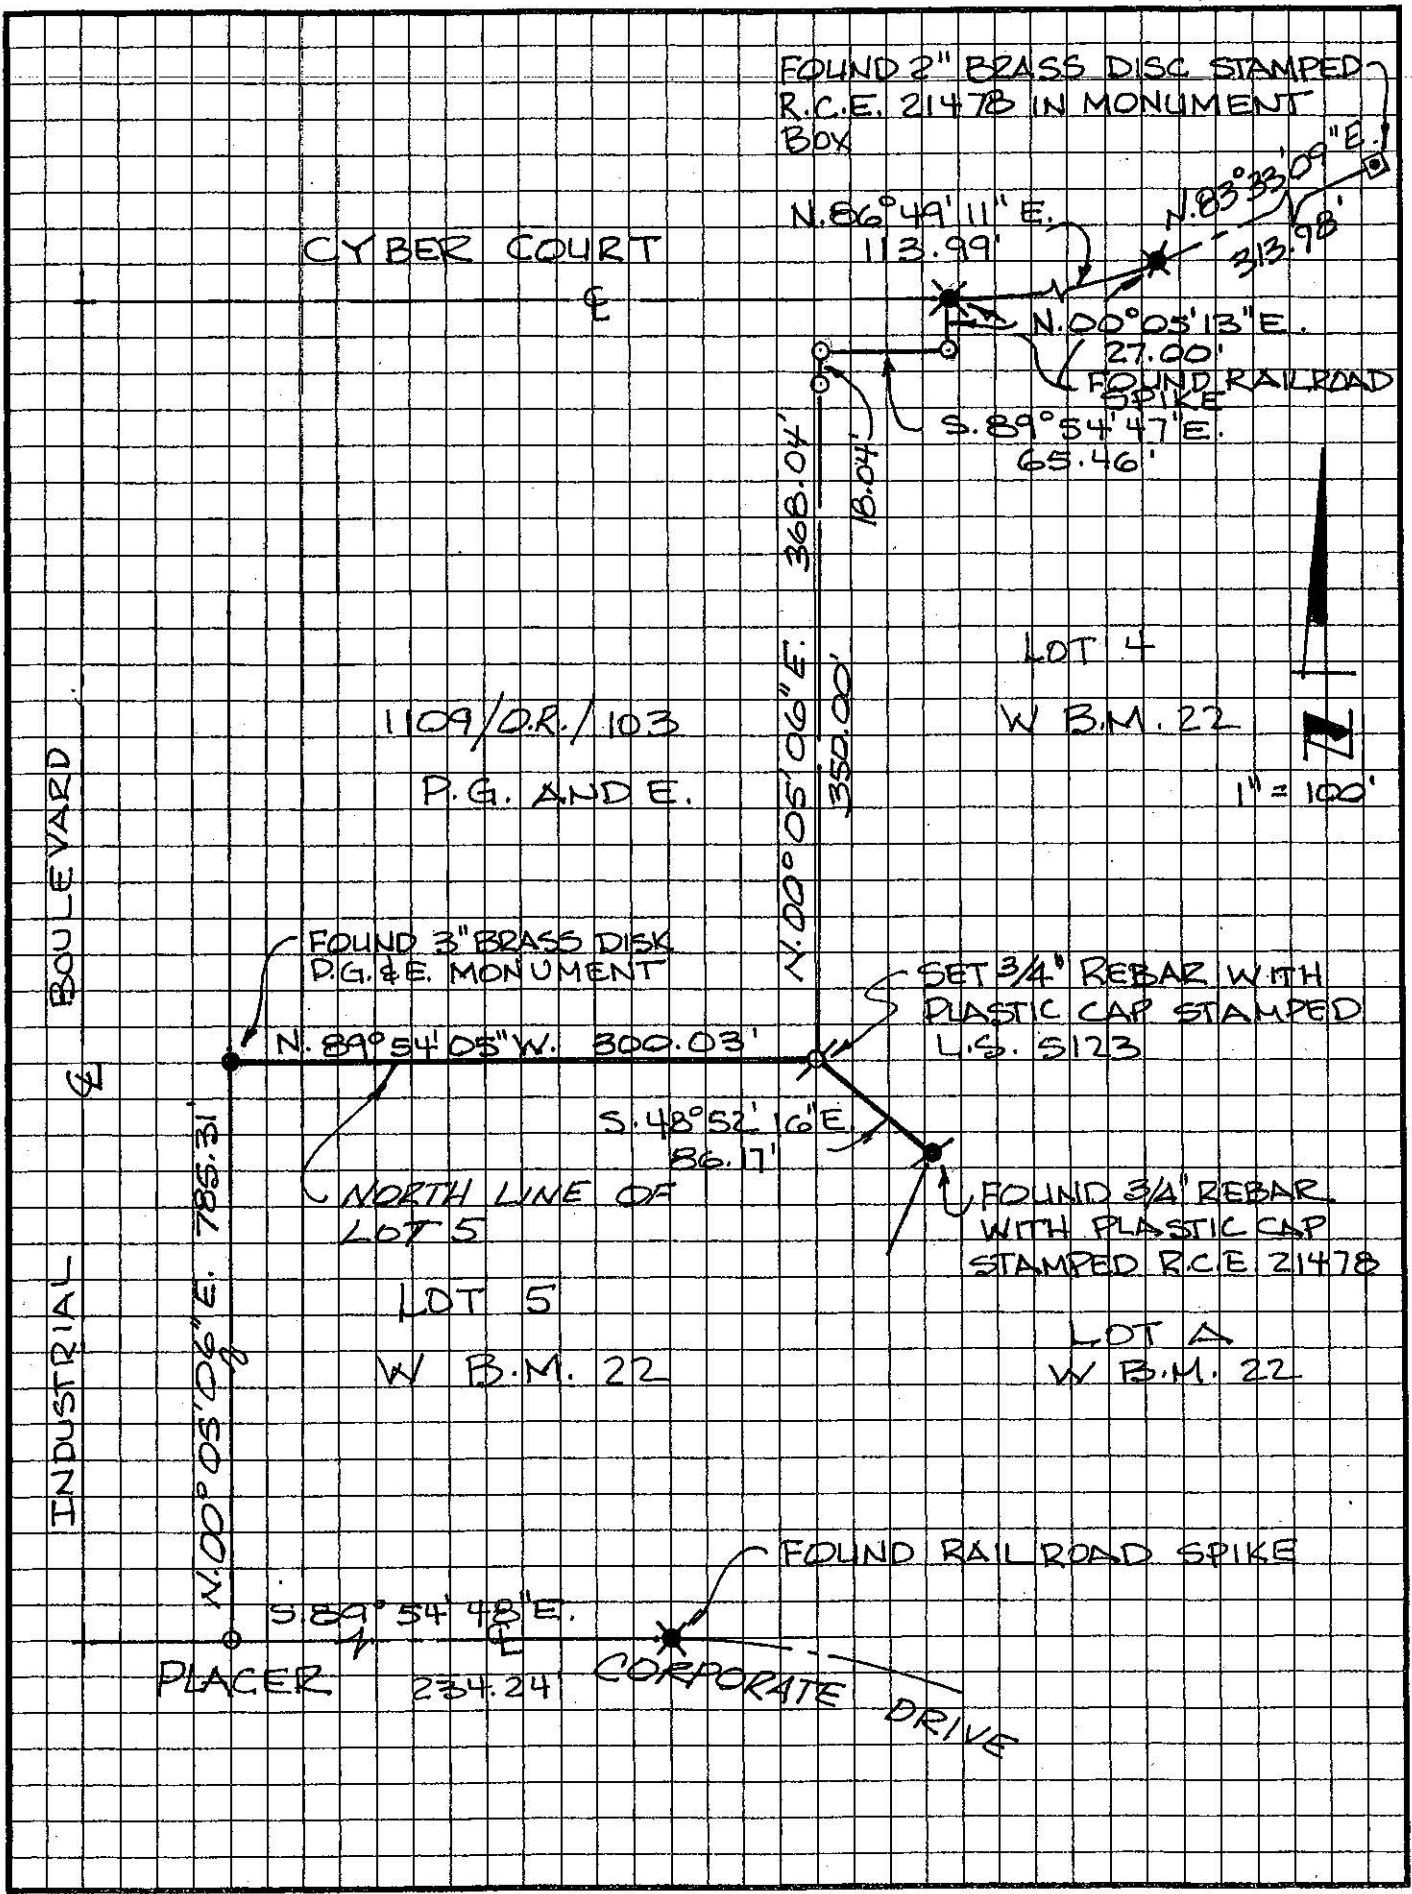 FOUND 2" BRASS DISC STAMPED
R.C.E. 21478 IN MONUMENT
BOX
N.83°33'09"E.
313.98'
N.86°49'11"E.
113.99'
CYBER COURT
N.00°05'13"E.
27.00'
FOUND RAILROAD
SPIKE
S.89°54'47"E.
65.46'
368.04'
18.04'
N.00°05'06"E.
350.00'
LOT 4
W B.M. 22
1109/O.R./103
P.G. AND E.
1" = 100'
INDUSTRIAL BOULEVARD
FOUND 3" BRASS DISK
P.G.&E. MONUMENT
SET 3/4" REBAR WITH
PLASTIC CAP STAMPED
L.S. 5123
N. 89°54'05"W. 300.03'
S.48°52'16"E
86.17'
NORTH LINE OF
LOT 5
FOUND 3/4" REBAR
WITH PLASTIC CAP
STAMPED R.C.E. 21478
N.00°05'06"E. 785.31'
LOT 5
W B.M. 22
LOT A
W B.M. 22
FOUND RAILROAD SPIKE
S.89°54'48"E.
234.24'
PLACER CORPORATE DRIVE